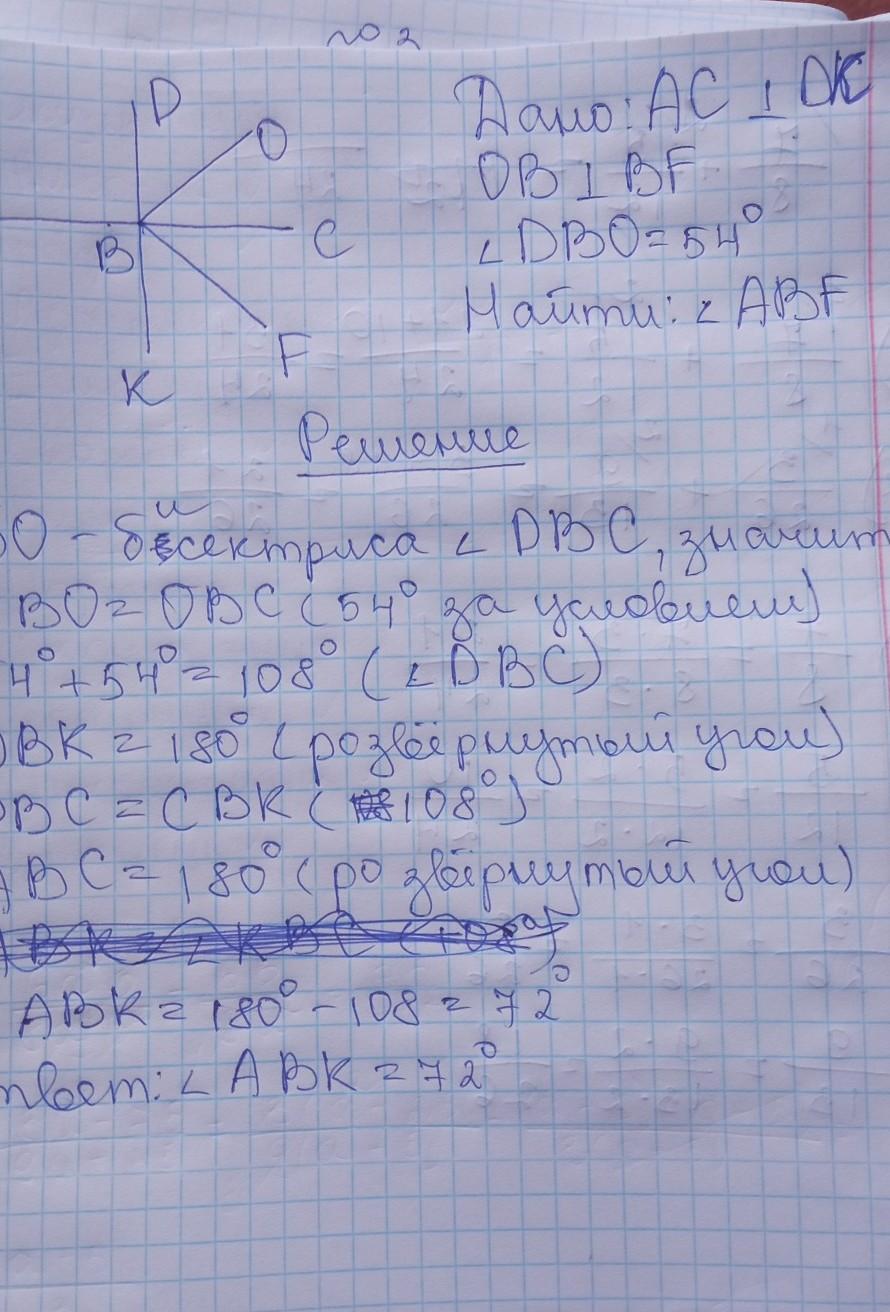 № 2
D
O
B
C
F
K
Дано: AC ⊥ DK
OB ⊥ BF
∠DBO = 54°
Найти: ∠ABF
Решение
O - биссектриса ∠DBC, значит
BO = OBC (54° за условием)
4° + 54° = 108° (∠DBC)
BK = 180° (розвёрнутый угол)
BC = CBK (108°)
BC = 180° (розвёрнутый угол)
ABK = 180° - 108 = 72°
твет: ∠ABK = 72°